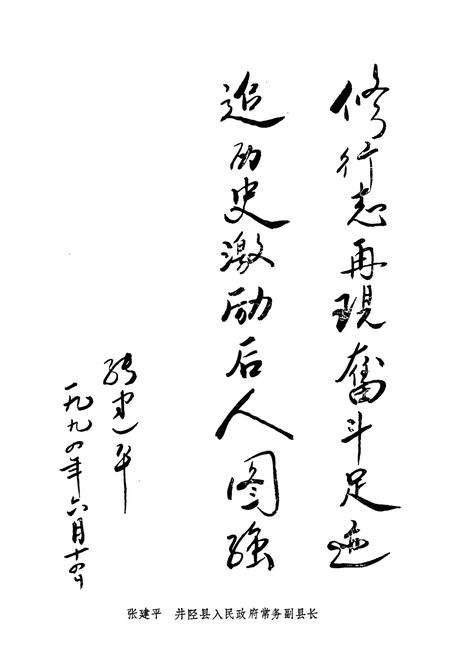 修行志再现奋斗足迹
追历史激励后人图强
张建平
一九九四年六月十四日
张建平 井陉县人民政府常务副县长